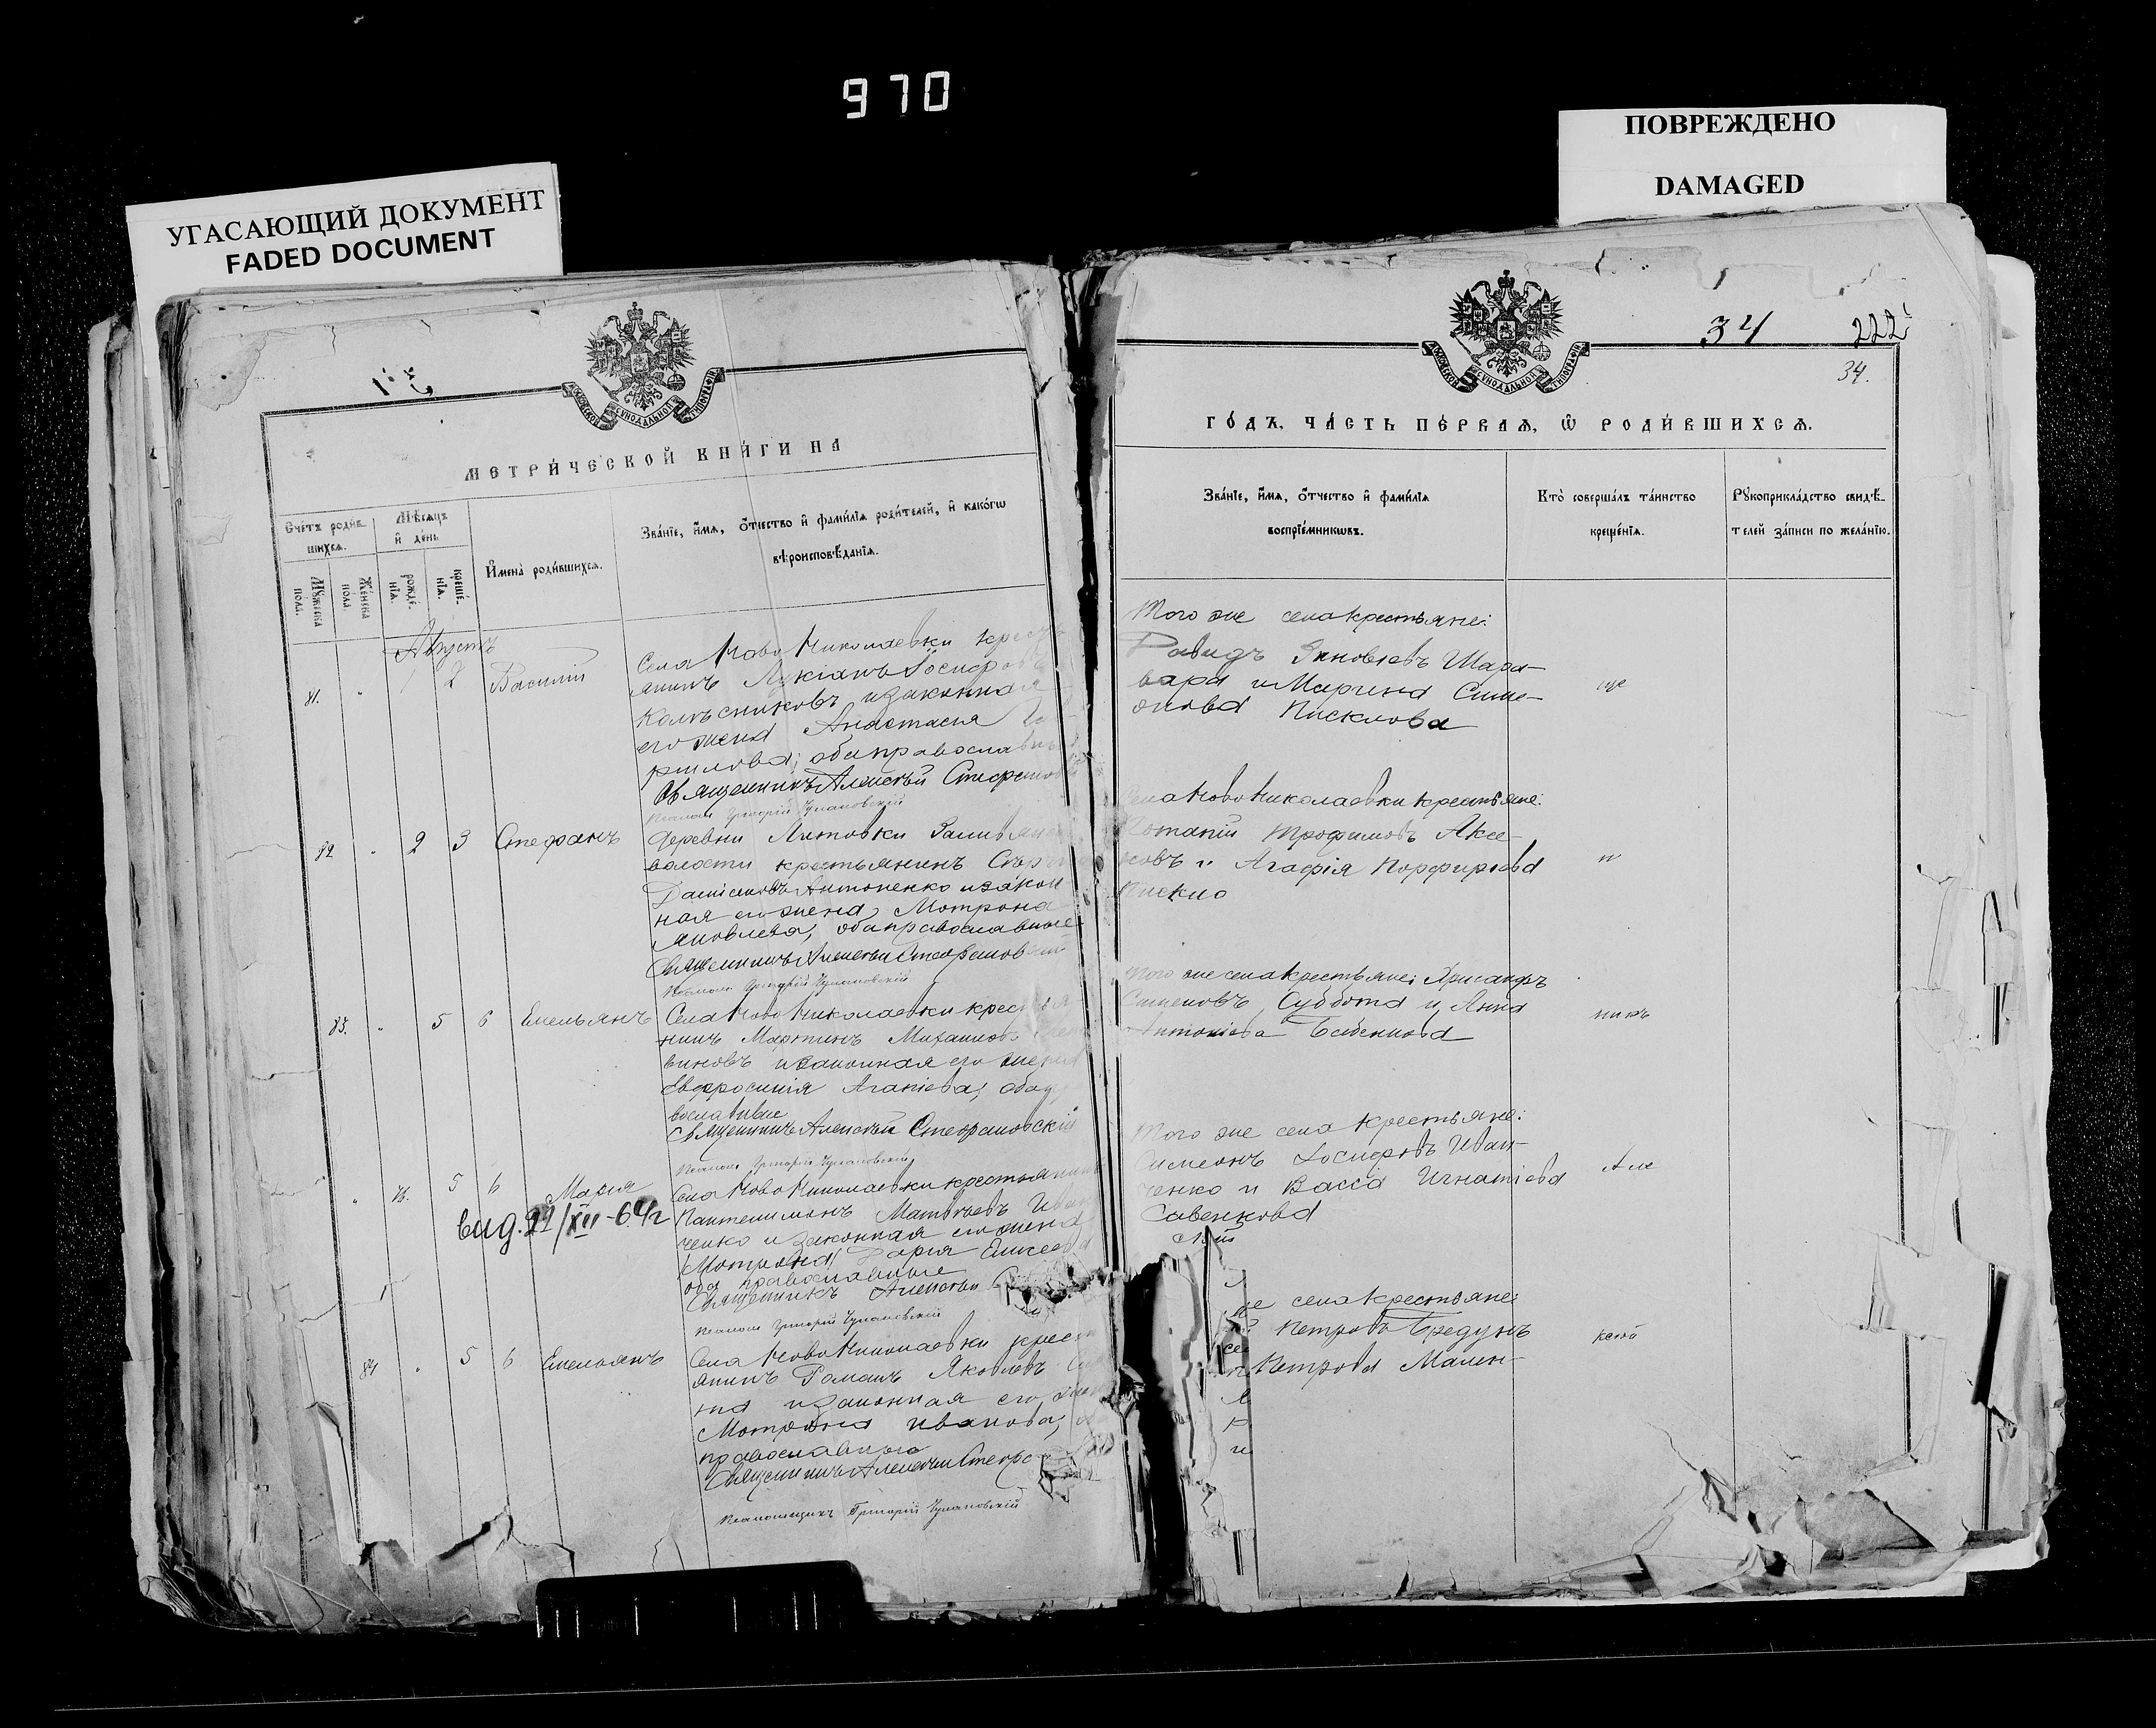 970
ПОВРЕЖДЕНО
DAMAGED
УГАСАЮЩИЙ ДОКУМЕНТ
FADED DOCUMENT
МЕТРИ́ЧЕСКОЙ КНИ́ГИ НА
Сче́тъ роди́в-
шихсѧ.
Мѣ́сѧцъ
и҆ де́нь
Мꙋ́жеска
по́ла.
Же́нска
по́ла.
рожде́-
нїѧ.
креще́-
нїѧ.
И҆мена̀ роди́вшихсѧ.
Зва́нїе, и҆́мѧ, ѻ҆́тчество и҆ фами́лїѧ роди́телей, и҆ како́гѡ
вѣроисповѣ́данїѧ.
Августъ
81. " 1 2 Василій
Села Ново Николаевки крест
янинъ Лукіанъ Іосифовъ
Колѣсниковъ и законная
его жена Анастасія
рилова; оба православны
Священникъ Алексѣй Стефановск
Псаломщ Григорій Чулановскій
82 " 2 3 Стефанъ
Деревни Литовки
волости крестьянинъ
Антоненко и закон
ная его жена, Мотрона
Яковлева, оба православные
Священникъ Алексѣй Стефановскій
Псаломщ Григорій Чулановскій
83. " 5 6 Емельянъ
Села Ново Николаевки крестья
нинъ Мартинъ Михаиловъ
виновъ и законная его жена
Евфросинія Агапіева; оба
вославные
Священникъ Алексѣй Стефановскій
Псаломщ Григорій Чулановскій
" 76. 5 6 Марія
Села Ново Николаевки крестьянинъ
вид. 21/XII-64г
Пантелимонъ Матвѣевъ Иван
ченко и законная его жена
Мотрона Дарія Елисеева
оба православные
Священникъ Алексѣй
Псаломщ Григорій Чулановскій
84 " 5 6 Емельянъ
Села Ново Николаевки крест
янинъ Романъ Яковлевъ
на и законная его жена
Мотрона Иванова,
православные
Священникъ Алексѣй Стефа
Псаломщикъ Григорій Чулановскій
34
222
34.
ГО́ДЪ, ЧА́СТЬ ПЕ́РВАѦ, Ѡ҆ РОДИ́ВШИХСѦ.
Зва́нїе, и҆́мѧ, ѻ҆́тчество и҆ фами́лїѧ
воспрїе́мникѡвъ.
Кто̀ соверша́лъ та́инство
креще́нїѧ.
Рꙋкоприкла́дство свидѣ́-
телей за́писи по жела́нїю.
Того же села крестьяне:
Давидъ Яковлевъ Шара-
вара и Марина Симе-
онова Писклова
Села Ново Николаевки крестьяне:
Потапій Трофимовъ Аксе-
новъ и Агафія Порфиріева
Того же села крестьяне: Хрисанфъ
Симеоновъ Суббота и Анна
Антоніева
никъ
Того же села крестьяне:
Симеонъ Іосифовъ Иван-
ченко и Васса Игнатіева
Савенкова
Але
же села крестьяне:
Петровъ Бредунъ
Петрова Мален-